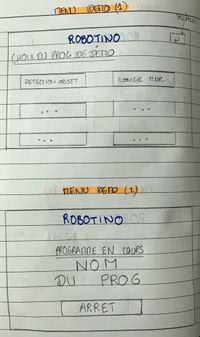 MENU DEMO (1)
RETOUR
ROBOTINO
CHOIX DU PROG DE DÉMO
DETECTION OBJET LONGE MUR
... ...
... ...
MENU DEMO (1)
ROBOTINO
PROGRAMME EN COURS
NOM
DU PROG
ARRET